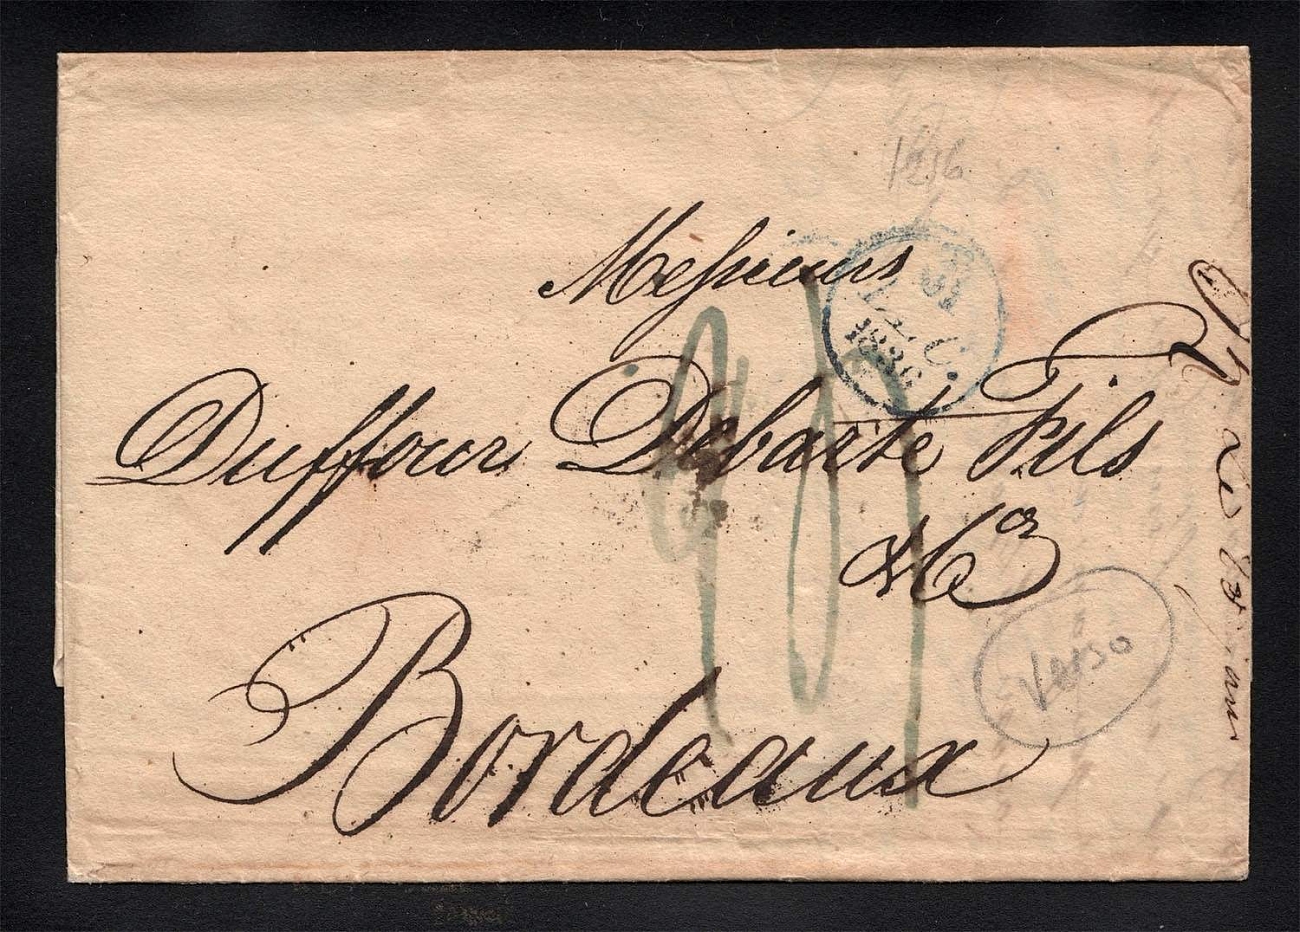 1836
Messieurs
31
DEC.
1836
Duffour Debarte Fils
& Co
Bordeaux
Verso